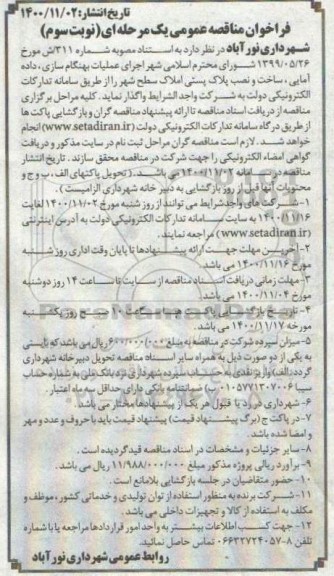 تاریخ انتشار: ۱۴۰۰/۱۱/۰۲
فراخوان مناقصه عمومی یک مرحله‌ای (نوبت سوم)
شهرداری نورآباد در نظر دارد به استناد مصوبه شماره ۳۱۱/ش مورخ
۱۳۹۹/۰۵/۲۶ شورای محترم اسلامی شهر اجرای عملیات بهنگام سازی، داده
آمایی، ساخت و نصب پلاک پستی املاک سطح شهر را از طریق سامانه تدارکات
الکترونیکی دولت به شرکت واجد الشرایط واگذار نماید. کلیه مراحل برگزاری
مناقصه از دریافت اسناد مناقصه تا ارائه پیشنهاد مناقصه گران و بازگشایی پاکت ها
از طریق درگاه سامانه تدارکات الکترونیکی دولت (www.setadiran.ir) انجام
خواهد شد. لازم است مناقصه گران مراحل ثبت نام در سایت مذکور و دریافت
گواهی امضاء الکترونیکی را جهت شرکت در مناقصه محقق سازند. تاریخ انتشار
مناقصه در سامانه ۱۴۰۰/۱۱/۰۲ می باشد. (تحویل پاکتهای الف، ب و ج و
محتویات آنها قبل از روز بازگشایی به دبیر خانه شهرداری الزامیست).
۱- شرکت های واجد شرایط می توانند از روز شنبه مورخ ۱۴۰۰/۱۱/۰۲ لغایت
۱۴۰۰/۱۱/۱۶ به سایت سامانه تدارکات الکترونیکی دولت به آدرس اینترنتی
(www.setadiran.ir) مراجعه نمایند.
۲- آخرین مهلت جهت ارائه پیشنهادها تا پایان وقت اداری روز شنبه
مورخ ۱۴۰۰/۱۱/۱۶ می باشد.
۳- مهلت زمانی دریافت اسناد مناقصه از سایت تا ساعت ۱۴ روز دوشنبه
مورخ ۱۴۰۰/۱۱/۰۴ می باشد.
۴- تاریخ بازگشایی ساعت ۱۰ صبح روز یکشنبه
مورخه ۱۴۰۰/۱۱/۱۷ می باشد.
۵- میزان سپرده شرکت در مناقصه به مبلغ ۶۰۰/۰۰۰/۰۰۰ ریال می باشد که بایستی
به یکی از دو صورت ذیل به همراه سایر اسناد مناقصه تحویل دبیرخانه شهرداری
گردد: الف) واریز نقدی به حساب سپرده شهرداری نزد بانک ملی به شماره حساب
سیبا ۰۱۰۵۷۷۱۳۰۷۰۰۶ ب) ضمانتنامه بانکی دارای حداقل سه ماه اعتبار.
۶- شهرداری در رد یا قبول هر یک از پیشنهادها مختار می باشد.
۷- در پاکت ج (برگ پیشنهاد قیمت) پیشنهاد قیمت باید با حروف و عدد و مهر
و امضا شده باشد.
۸- سایر جزئیات و مشخصات در اسناد مناقصه قید گردیده است.
۹- برآورد ریالی پروژه مذکور مبلغ ۱۱/۹۸۸/۰۰۰/۰۰۰ ریال می باشد.
۱۰- حضور متقاضیان در جلسه بازگشایی بلامانع است.
۱۱- شرکت برنده به منظور استفاده از توان تولیدی و خدماتی کشور، موظف و
مکلف به استفاده از کالا و تجهیزات داخلی می باشد.
۱۲- جهت کسب اطلاعات بیشتر به واحد امور قراردادها مراجعه یا با شماره
تلفن ۸-۰۶۶۳۲۷۲۴۰۵۷ تماس حاصل نمائید.
روابط عمومی شهرداری نورآباد